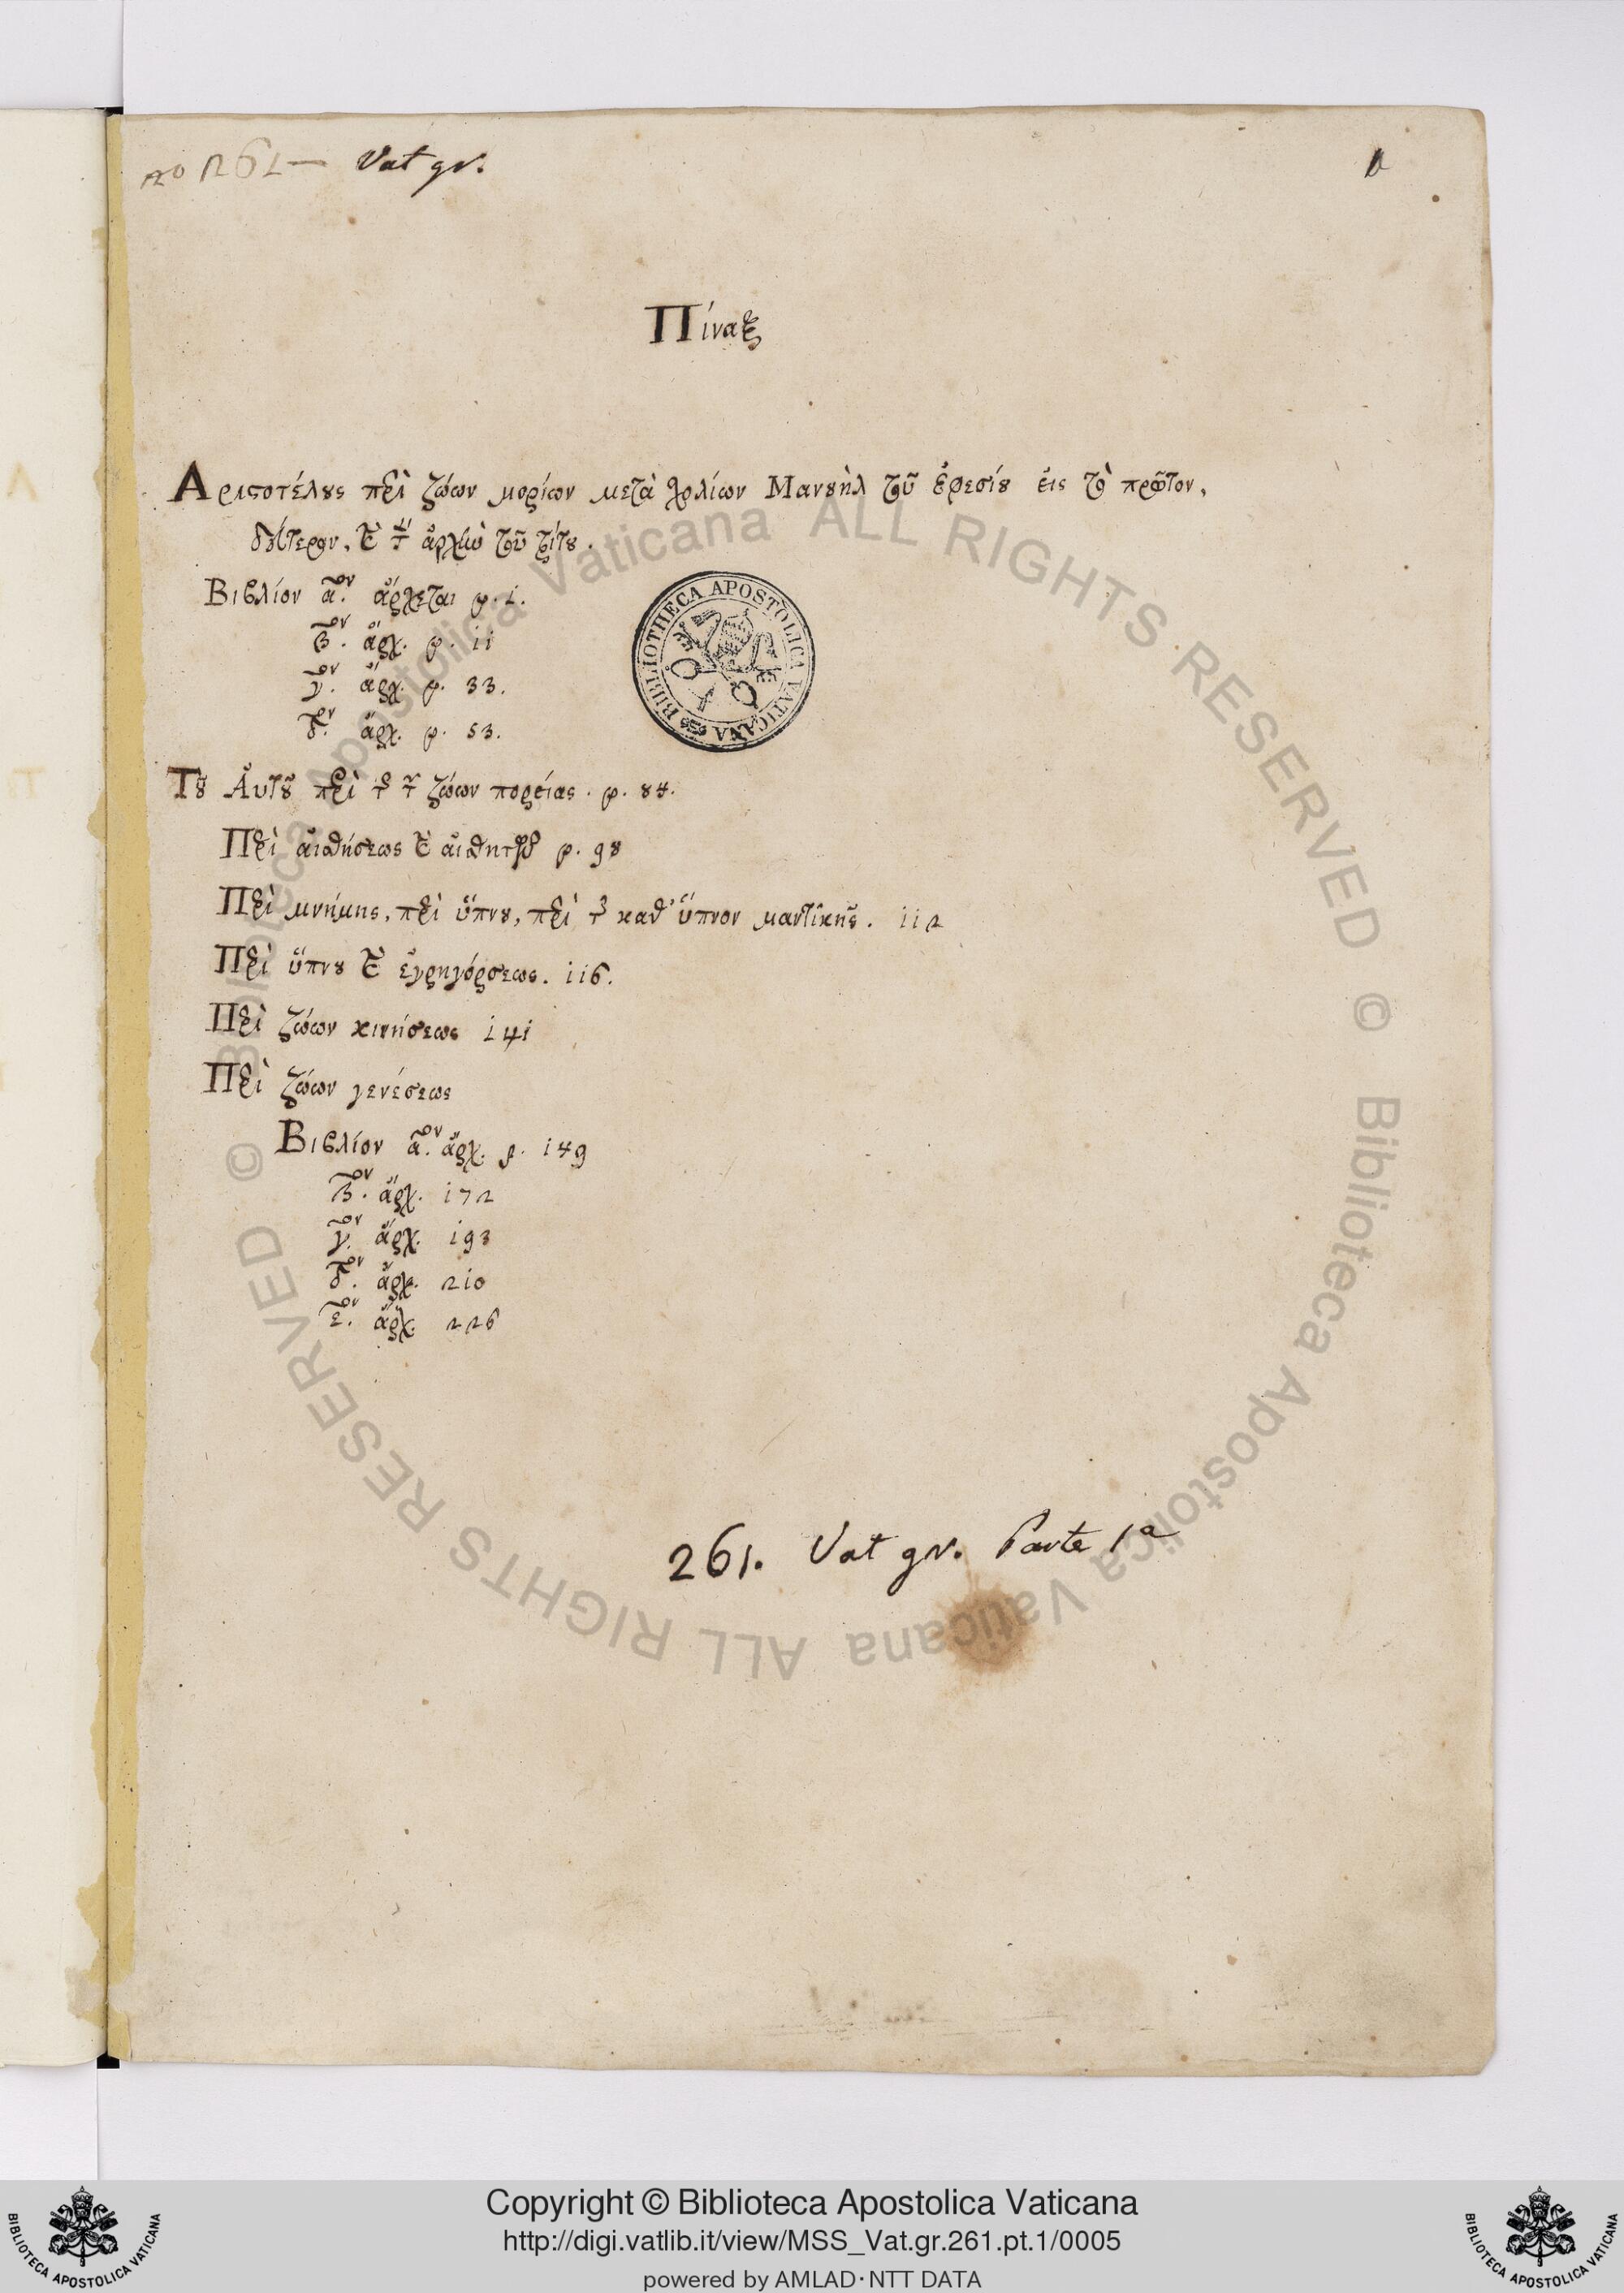 no 261 — Vat gr.
Πίναξ
Αριϛοτέλȣς περὶ ζώων μορίων μετὰ σχολίων Μανȣὴλ τοῦ ἐφεσίȣ ἐις τὸ πρῶτον,
δεύτερον, καὶ τὴν ἀρχὴν τοῦ τρίτȣ.
Βιβλίον α.ον ἄρχεται φ. 1.
β.ον ἄρχ. φ. 11
γ.ον ἄρχ. φ. 33.
δ.ον ἄρχ. φ. 53.
Τȣ̃ Αὐτȣ̃ περὶ τῆς τῶν ζώων πορείας. φ. 84.
Περὶ αἰσθήσεως καὶ αἰσθητῶν φ. 98
Περὶ μνήμης, περὶ ὕπνȣ, περὶ τῆς καθ' ὕπνον μαντικῆς. 112
Περὶ ὕπνȣ καὶ ἐγρηγόρσεως. 116.
Περὶ ζώων κινήσεως 141
Περὶ ζώων γενέσεως
Βιβλίον α.ον ἄρχ. φ. 149
β.ον ἄρχ. 172
γ.ον ἄρχ. 193
δ.ον ἄρχ. 210
ε.ον ἄρχ. 226
BIBLIOTHECA APOSTOLICA VATICANA
261. Vat gr. Parte 1a
© Biblioteca Apostolica Vaticana ALL RIGHTS RESERVED © Biblioteca Apostolica Vaticana ALL RIGHTS RESERVED
Copyright © Biblioteca Apostolica Vaticana
http://digi.vatlib.it/view/MSS_Vat.gr.261.pt.1/0005
powered by AMLAD·NTT DATA
BIBLIOTECA APOSTOLICA VATICANA
BIBLIOTECA APOSTOLICA VATICANA